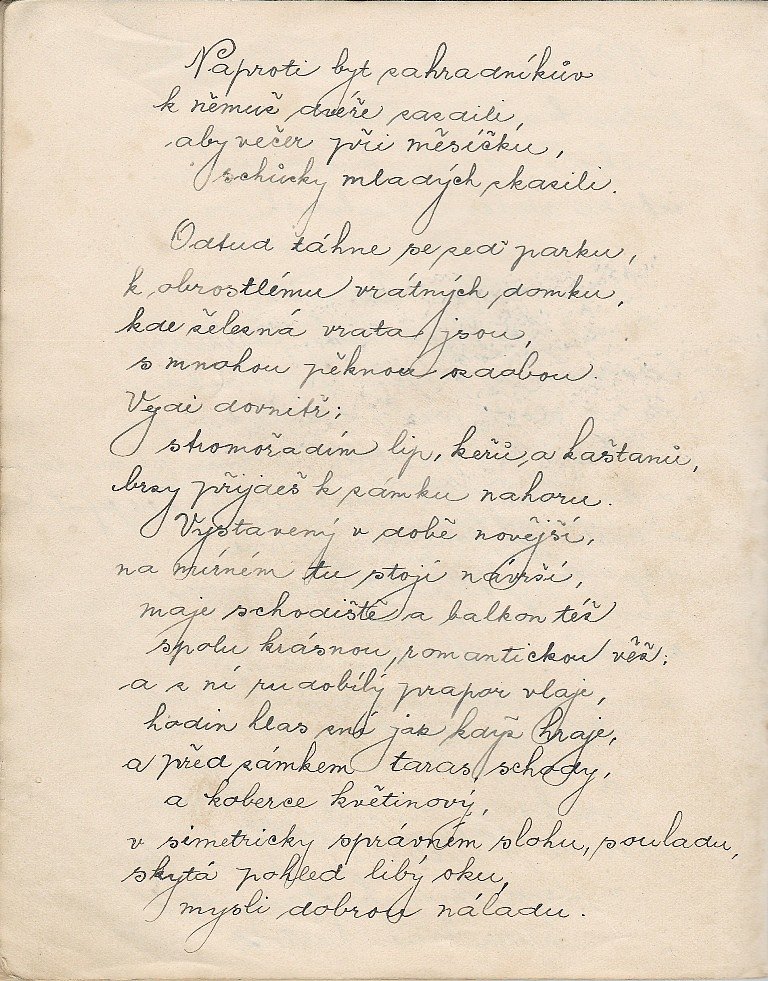 Naproti byt zahradníkův
k němuž dvéře zasadili,
aby večer při měsíčku,
schůzky mladých zkazili.
Odtud táhne se zeď parku,
k obrostlému vrátných domku,
kde železná vrata jsou,
s mnohou pěknou ozdobou
Vejdi dovnitř;
stromořadím lip, keřů, a kaštanů,
brzy přijdeš k zámku nahoru.
Vystavený v době novější,
na mírném tu stojí návrší,
maje schodiště a balkon též
spolu krásnou, romantickou věž;
a z ní rudobílý prapor vlaje,
hodin hlas zní jak když hraje,
a před zámkem taras, schody,
a koberce květinový,
v simetricky správném slohu, souladu,
skytá pohled libý oku,
mysli dobrou náladu.